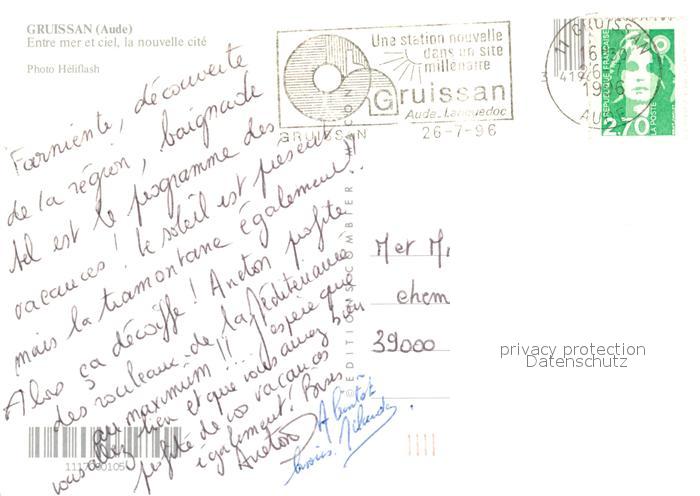 GRUISSAN (Aude)
Entre mer et ciel, la nouvelle cité
Photo Héliflash
Une station nouvelle
dans un site
millénaire
Gruissan
Aude-Languedoc
GRUISSAN
26-7-96
11 GRUISSAN
1996
AUDE
3 419
REPUBLIQUE FRANÇAISE
LA POSTE
2,70
Farniente, découverte
de la région, baignade
tel est le programme des
vacances! Le soleil est présent
mais la tramontane également!!
Alors ça décoiffe! Aneton profite
des rouleaux de la Méditerranée
au maximum!! J'espère que
vous allez bien et que vous aurez bien
profité de vos vacances
également! Bises
Aneton
A bientôt
bises.
EDITIONS COMBIER MACON
M et M.
chem
39000
privacy protection
Datenschutz